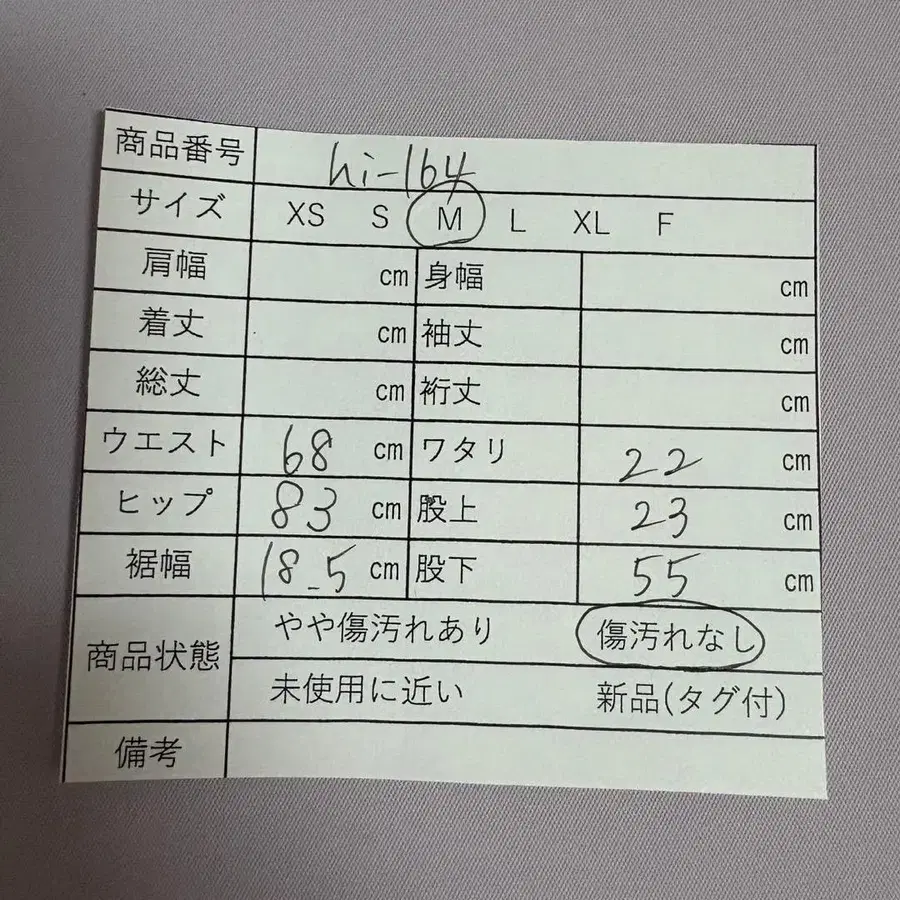 商品番号 hi-164
サイズ XS S M L XL F
肩幅 cm 身幅 cm
着丈 cm 袖丈 cm
総丈 cm 裄丈 cm
ウエスト 68 cm ワタリ 22 cm
ヒップ 83 cm 股上 23 cm
裾幅 18.5 cm 股下 55 cm
商品状態 やや傷汚れあり 傷汚れなし
未使用に近い 新品(タグ付)
備考